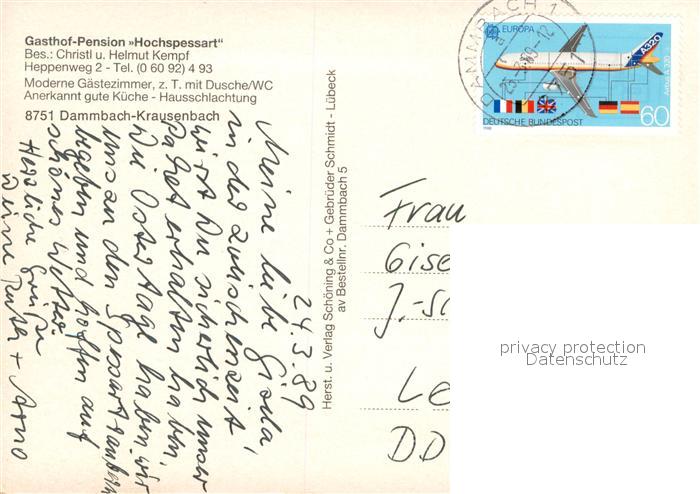 Gasthof-Pension »Hochspessart"
Bes.: Christl u. Helmut Kempf
Heppenweg 2 - Tel. (0 60 92) 4 93
Moderne Gästezimmer, z. T. mit Dusche/WC
Anerkannt gute Küche - Hausschlachtung
8751 Dammbach-Krausenbach
24.3.89
Meine liebe Gisela,
in der Zwischenzeit
wirst Du sicherlich unser
Paket erhalten haben.
Die Ostertage haben wir
uns an den Spessartrand
begeben und hoffen auf
schönes Wetter.
Herzliche Grüße
Deine + Arno
Herst. u. Verlag Schöning & Co + Gebrüder Schmidt - Lübeck
av Bestellnr. Dammbach 5
DAMMBACH 1
EUROPA
A320
Airbus A 320
60
DEUTSCHE BUNDESPOST
1988
Frau
Gise
J.-Sc
Le
DD
privacy protection
Datenschutz